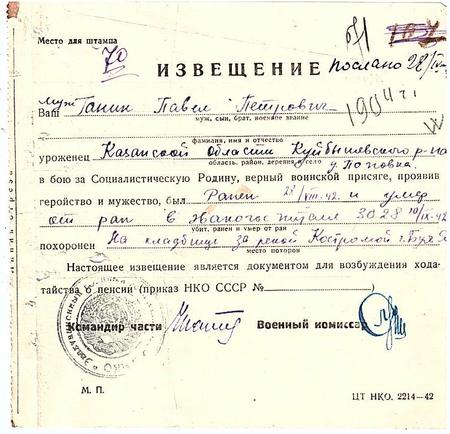 Место для штампа
70
ИЗВЕЩЕНИЕ
послано 28/
1904 г.
Ваш муж Ганин Павел Петрович
муж, сын, брат, военное звание
фамилия, имя и отчество
уроженец Казанской области Куйбышевского р-на
область, район, деревня и село
д. Поповка
в бою за Социалистическую Родину, верный воинской присяге, проявив
геройство и мужество, был Ранен 28/VIII-42. и умер
от ран в Эвакогоспитале 3028 10/IX-42
убит, ранен и умер от ран
похоронен На кладбище за рекой Костромой г.
место похорон
Настоящее извещение является документом для возбуждения хода-
тайства о пенсии (приказ НКО СССР №
Командир части
Военный комиссар
М. П.
ЦТ НКО. 2214—42